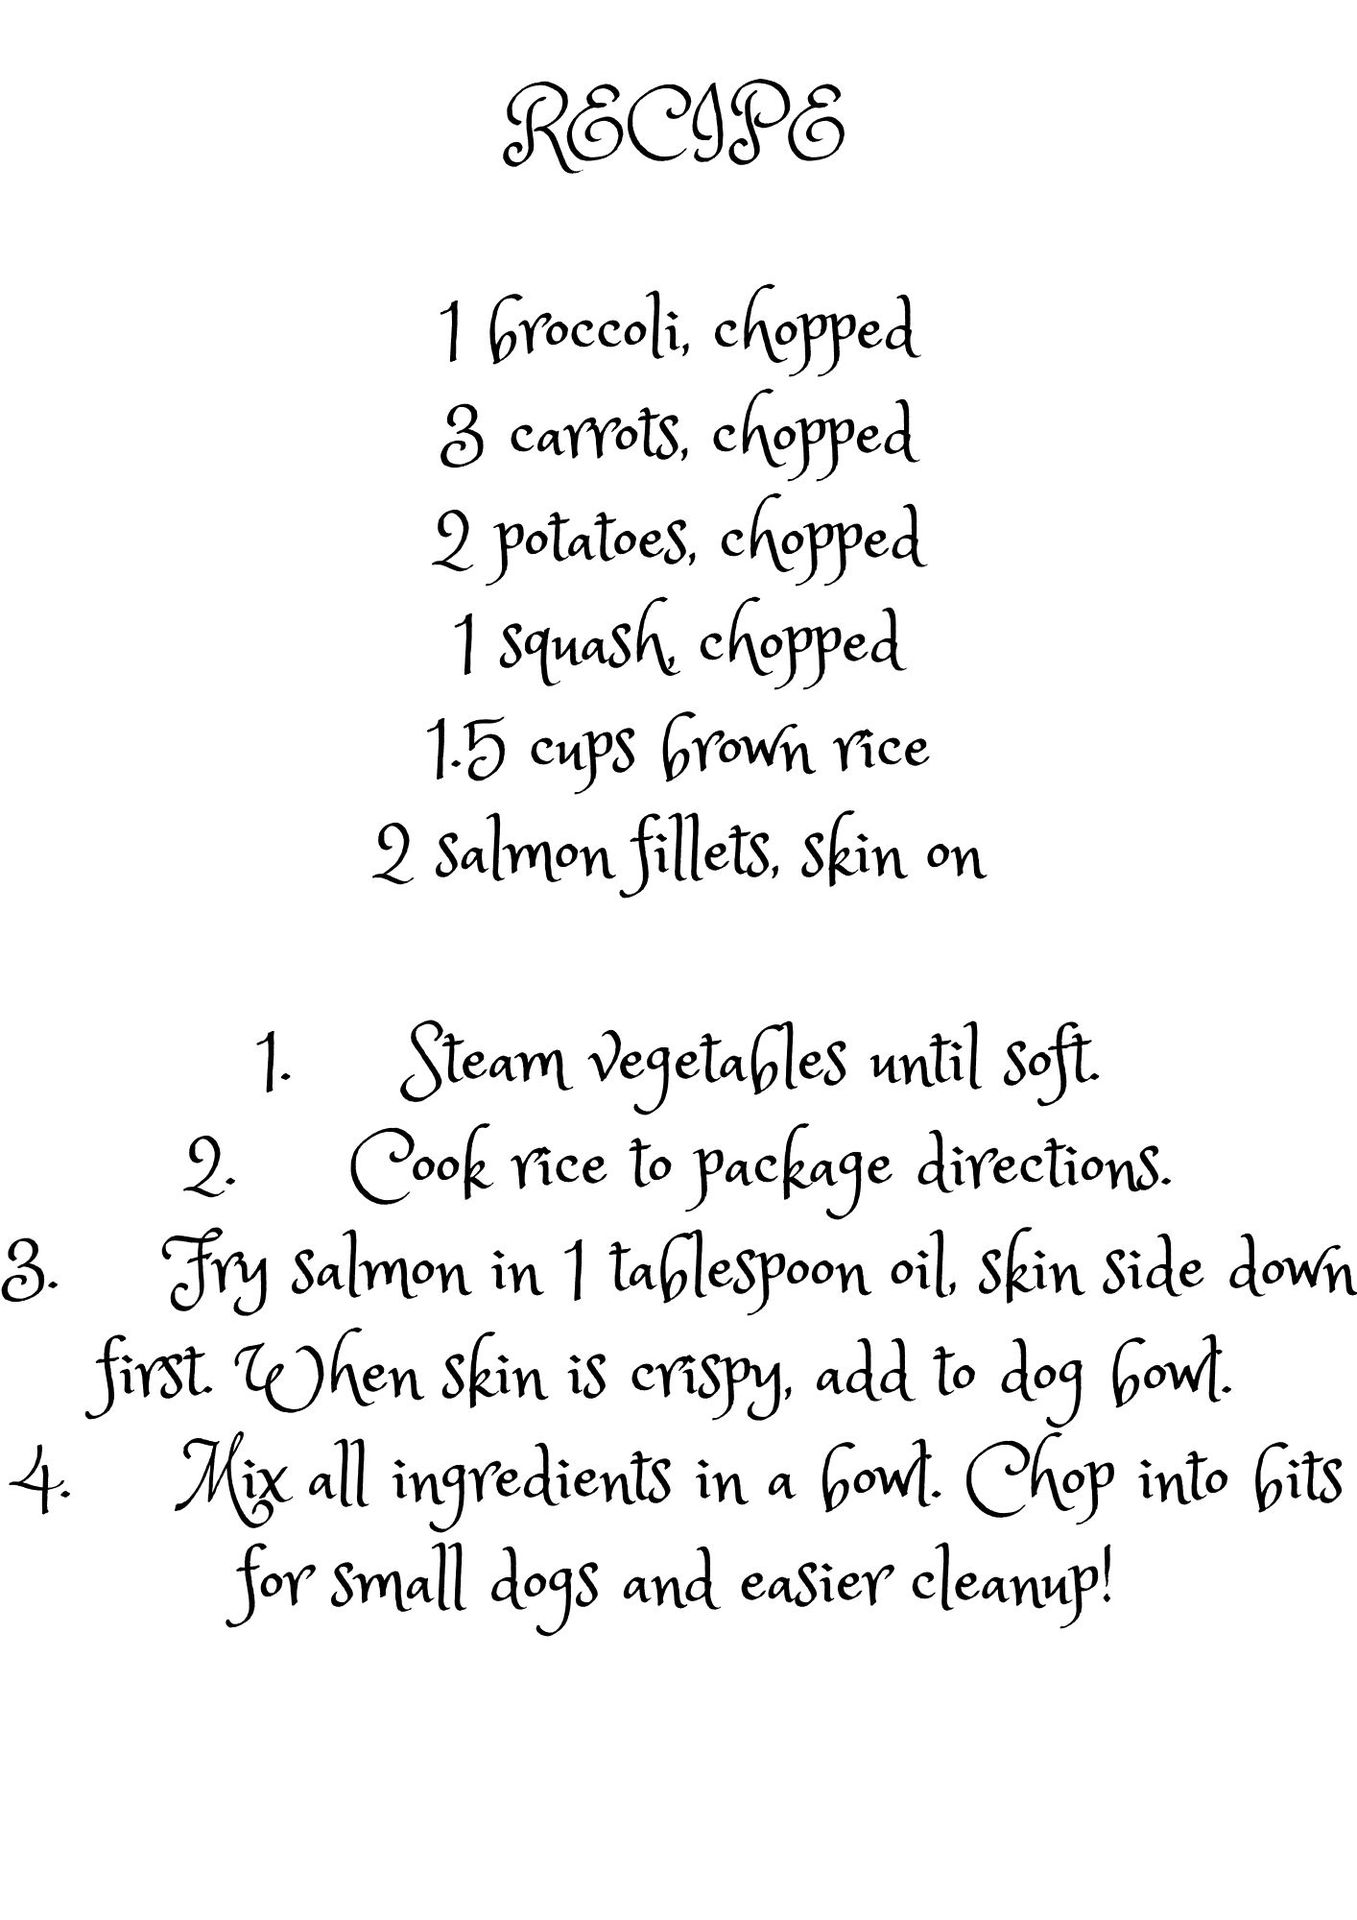 RECIPE
1 broccoli, chopped
3 carrots, chopped
2 potatoes, chopped
1 squash, chopped
1.5 cups brown rice
2 salmon fillets, skin on
1. Steam vegetables until soft.
2. Cook rice to package directions.
3. Fry salmon in 1 tablespoon oil, skin side down
first. When skin is crispy, add to dog bowl.
4. Mix all ingredients in a bowl. Chop into bits
for small dogs and easier cleanup!